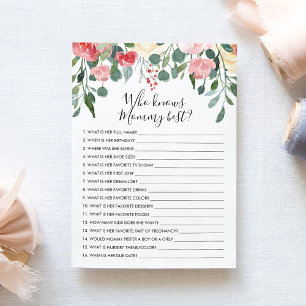 Who knows
Mommy best?
1. WHAT IS HER FULL NAME?
2. WHEN IS HER BIRTHDAY?
3. WHERE WAS SHE BORN?
4. WHAT IS HER SHOE SIZE?
5. WHAT IS HER FAVORITE TV SHOW?
6. WHAT IS HER FIRST JOB?
7. WHAT IS HER DREAM JOB?
8. WHAT IS HER FAVORITE DRINK?
9. WHAT IS HER FAVORITE COLOR?
10. WHAT IS HER FAVORITE DESSERT?
11. WHAT IS HER FAVORITE FOOD?
12. HOW MANY KIDS DOES SHE WANT?
13. WHAT IS HER FAVORITE PART OF PREGNANCY?
14. WOULD MOMMY PREFER A BOY OR A GIRL?
15. WHAT IS NURSERY THEME/COLOR?
16. WHEN IS HER DUE DATE?